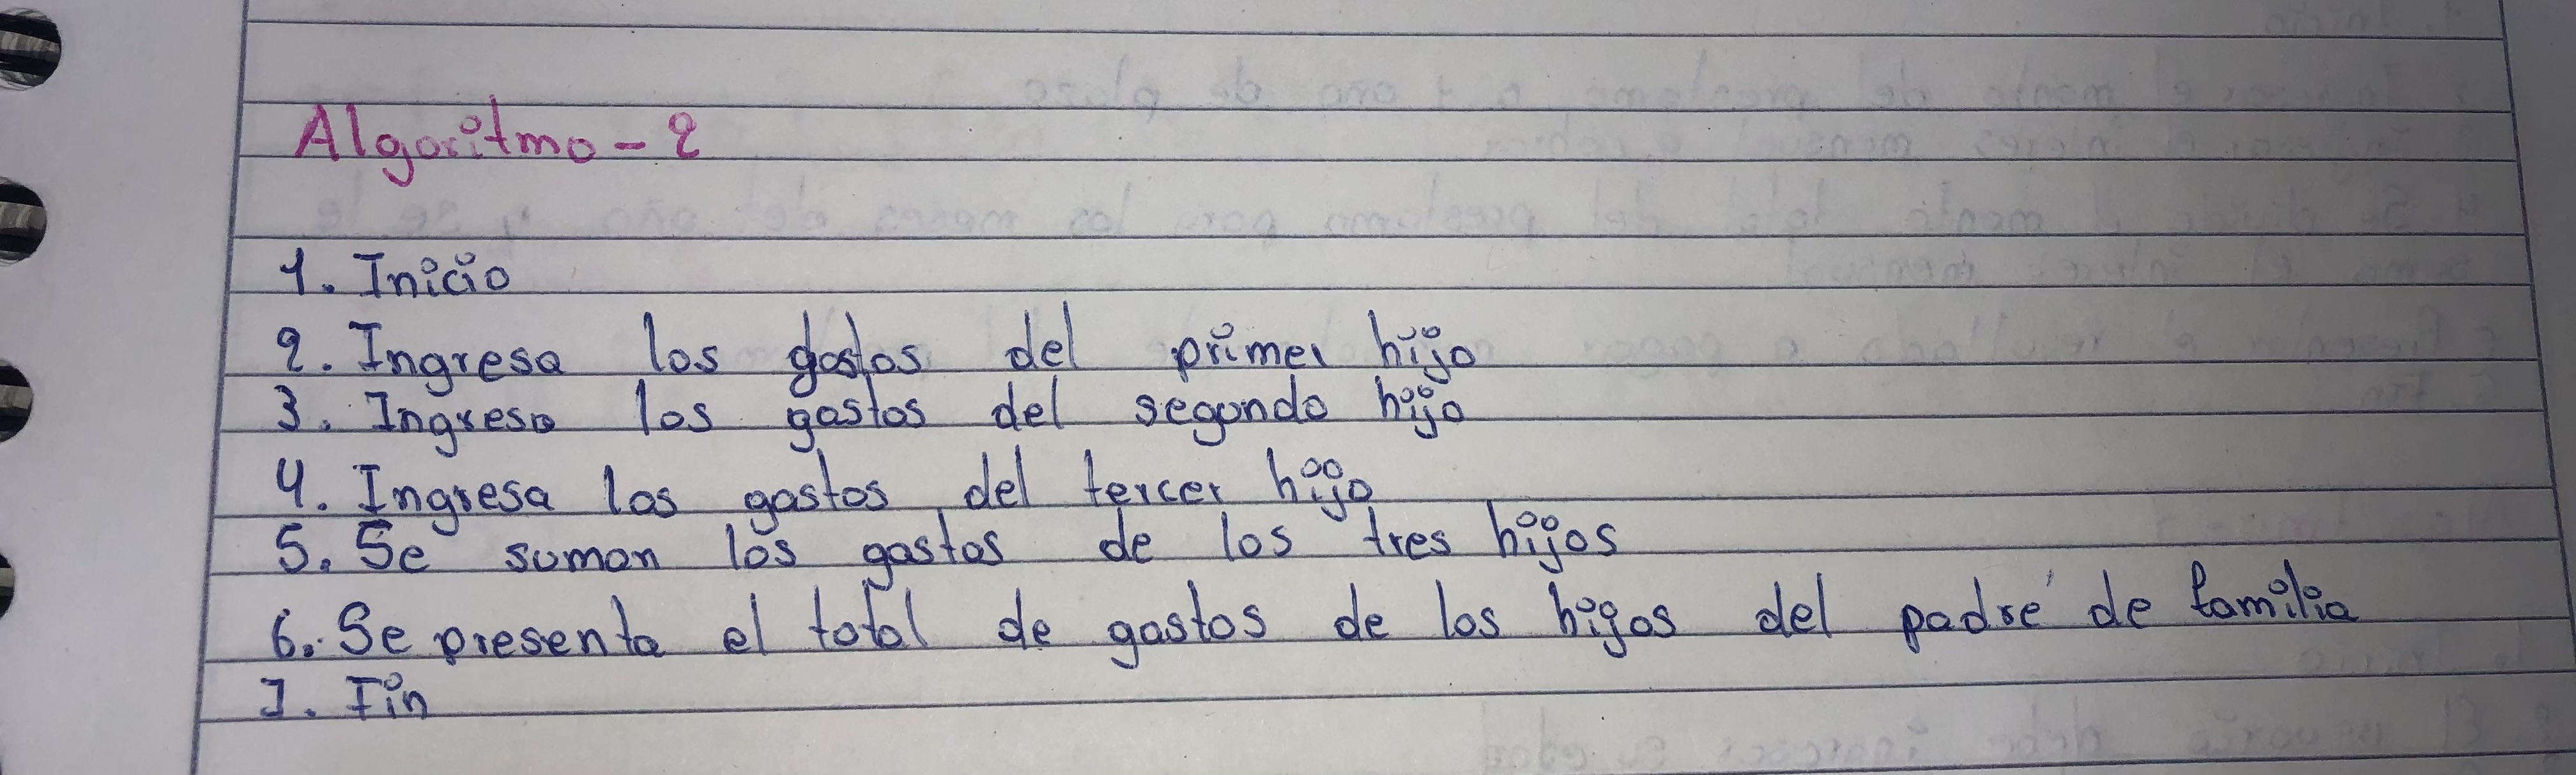 Algoritmo - 2
1. Inicio
2. Ingresa los gastos del primer hijo
3. Ingresa los gastos del segundo hijo
4. Ingresa los gastos del tercer hijo
5. Se suman los gastos de los tres hijos
6. Se presenta el total de gastos de los hijos del padre de familia
7. Fin